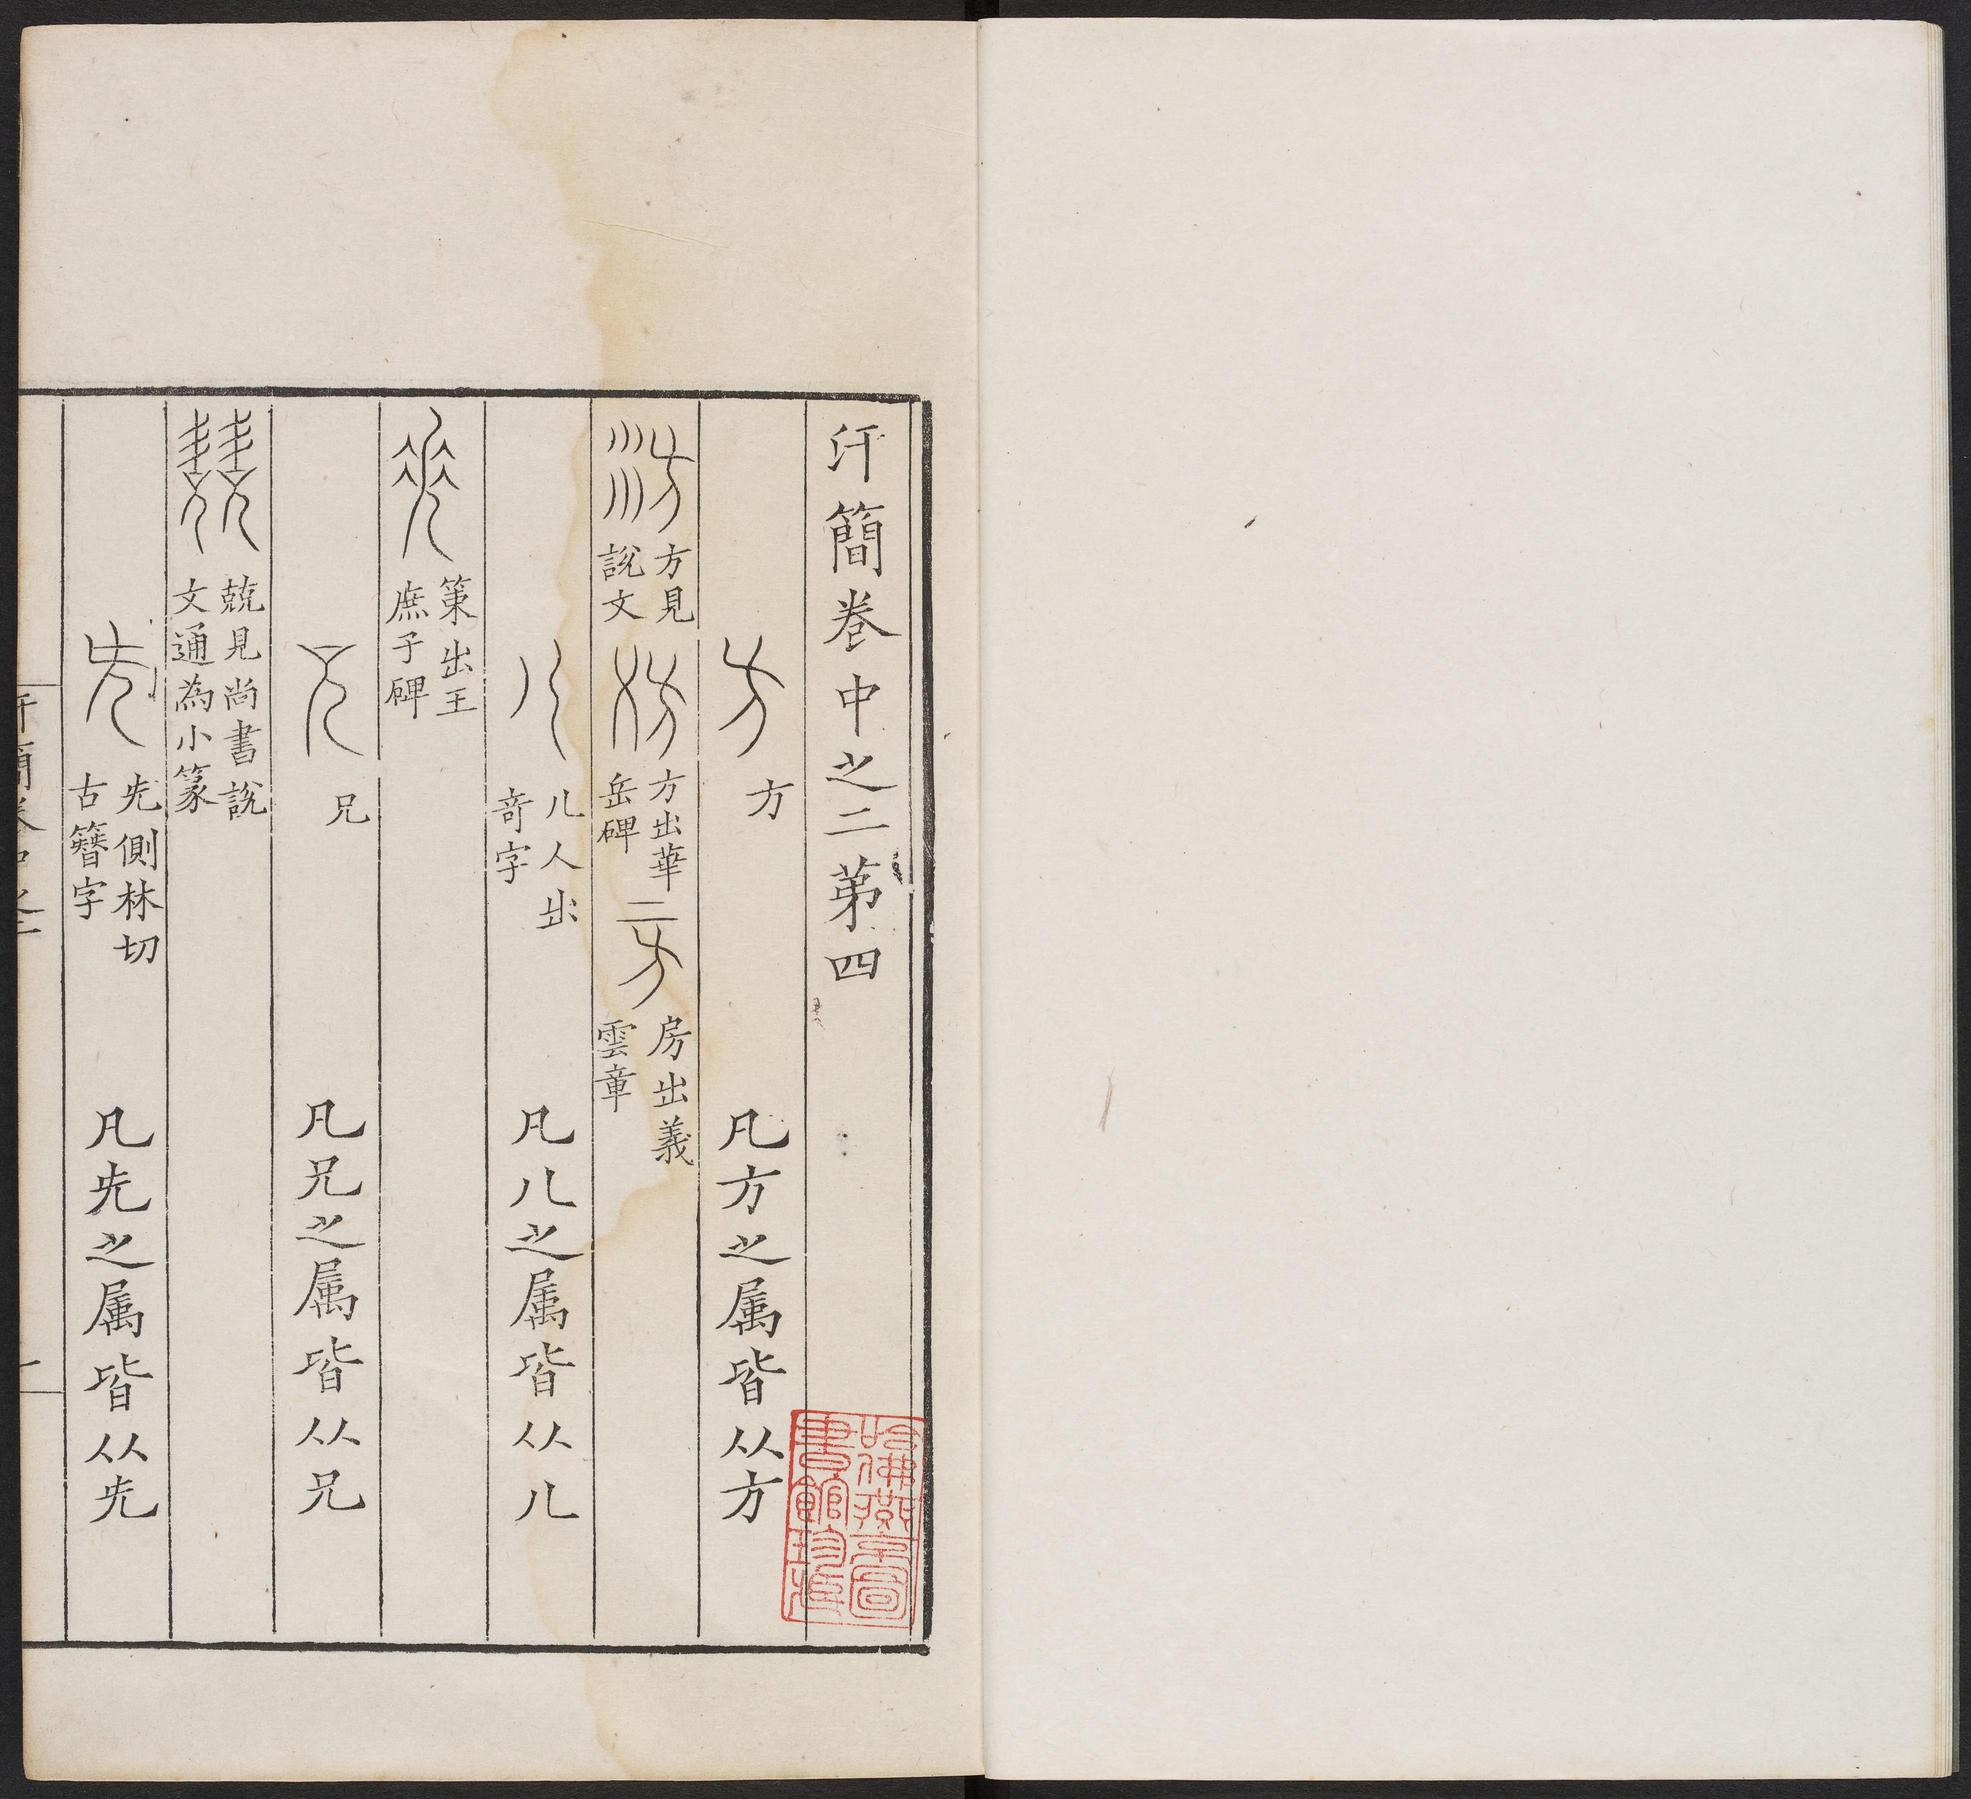 汗簡卷中之二第四
方 方 凡方之属皆从方
方見說文 方出華岳碑 房出義雲章
儿人出竒字 凡儿之属皆从儿
策出王庶子碑
兄 凡兄之属皆从兄
兢見尚書說文通為小篆
兂側林切古簪字 凡兂之属皆从兂
汗簡卷中之二
一
哈佛燕京圖書館珍藏